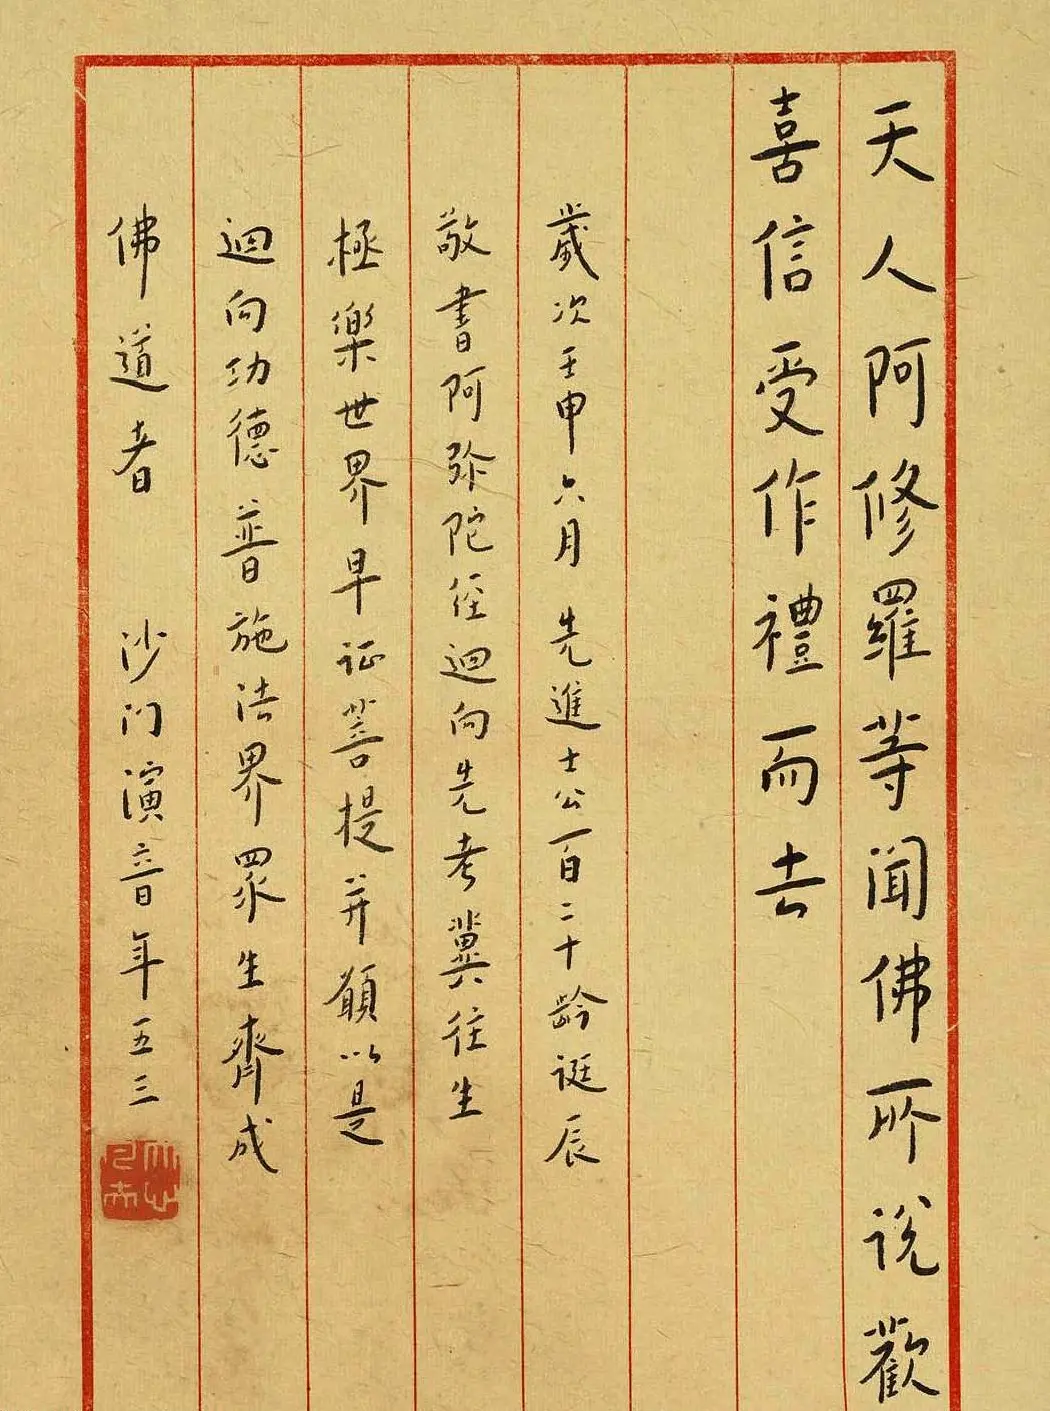 天人阿修羅等聞佛所說歡
喜信受作禮而去
歲次壬申六月先進士公百二十齡誕辰
敬書阿弥陀經迴向先考冀往生
極樂世界早证菩提并願以是
迴向功德普施法界眾生齊成
佛道者 沙门演音年五三